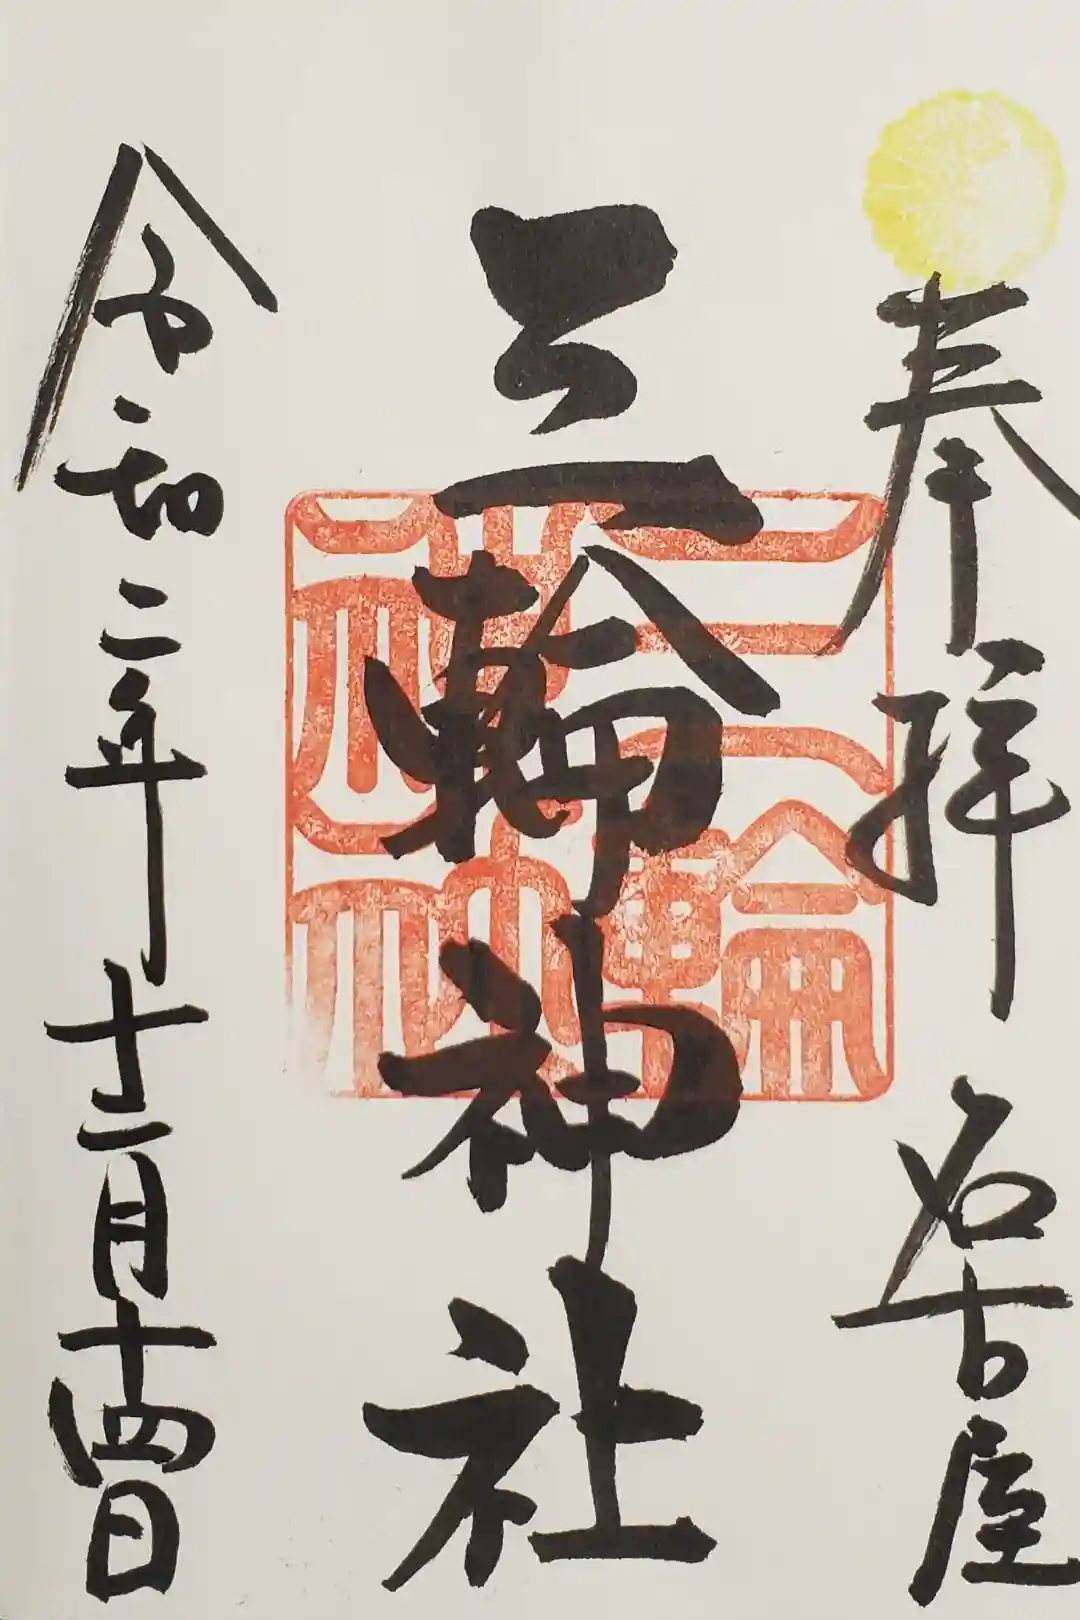 奉拝 名古屋
三輪神社
三輪神社
令和二年十二月十四日